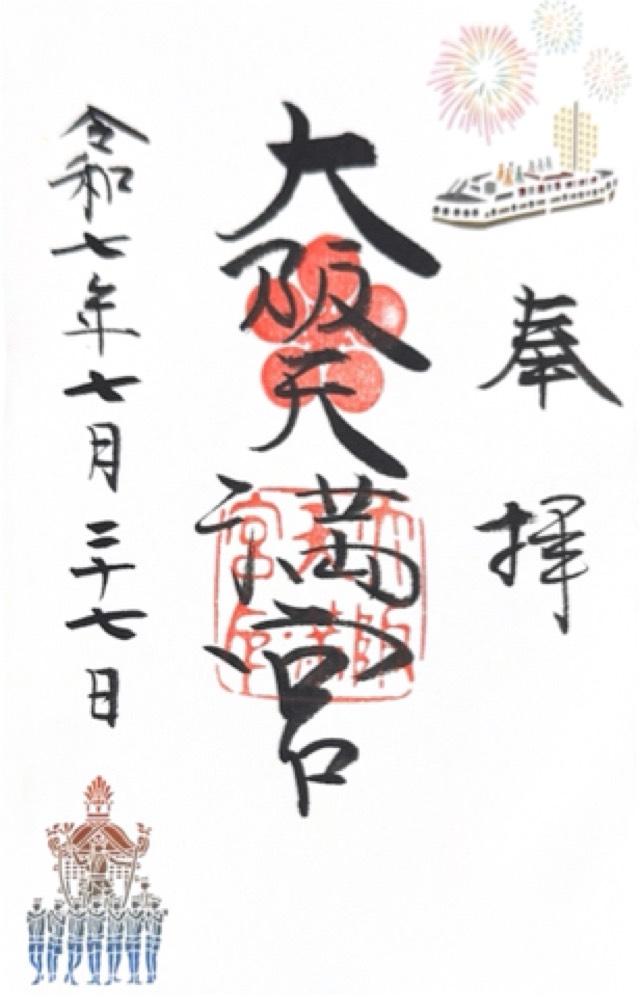 奉拝
大阪天満宮
令和七年七月二十七日